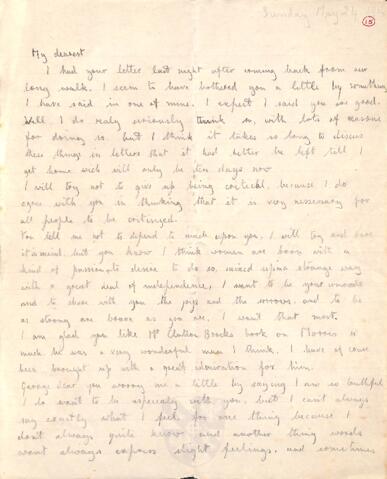 Sunday May 24
15
My dearest
I had your letter last night after coming back from our
long walk. I seem to have bothered you a little by something
I have said in one of mine. I expect I said you are good.
Well I do realy seriously think so, with lots of reasons
for doing so. but I think it takes so long to discuss
these things in letters that it had better be left till I
get home wich will only be ten days now
I will try not to give up being critical, because I do
agree with you in thinking that it is very nessessary for
all people to be
You tell me not to depend to much upon you, I will try and bare
it in mind. but you know I think women are born with a
kind of passionate desire to do so, mixed up in a strange way
with a great deal of independence, I want to be your
and to share with you the joys and the sorrows. and to be
as strong are brave as you are. I want that most.
I am glad you like Mr Clutton Brocks book on Morris so
much he was a very wonderful man I think. I have of course
been brought up with a great admiration for him.
George dear you worry me a little by saying I am so truthful
I do want to be especialy with you, but I cant always
say exactly what I feel, for one thing because I
dont always quite know and another thing words
wont always express slight feelings. and sometimes